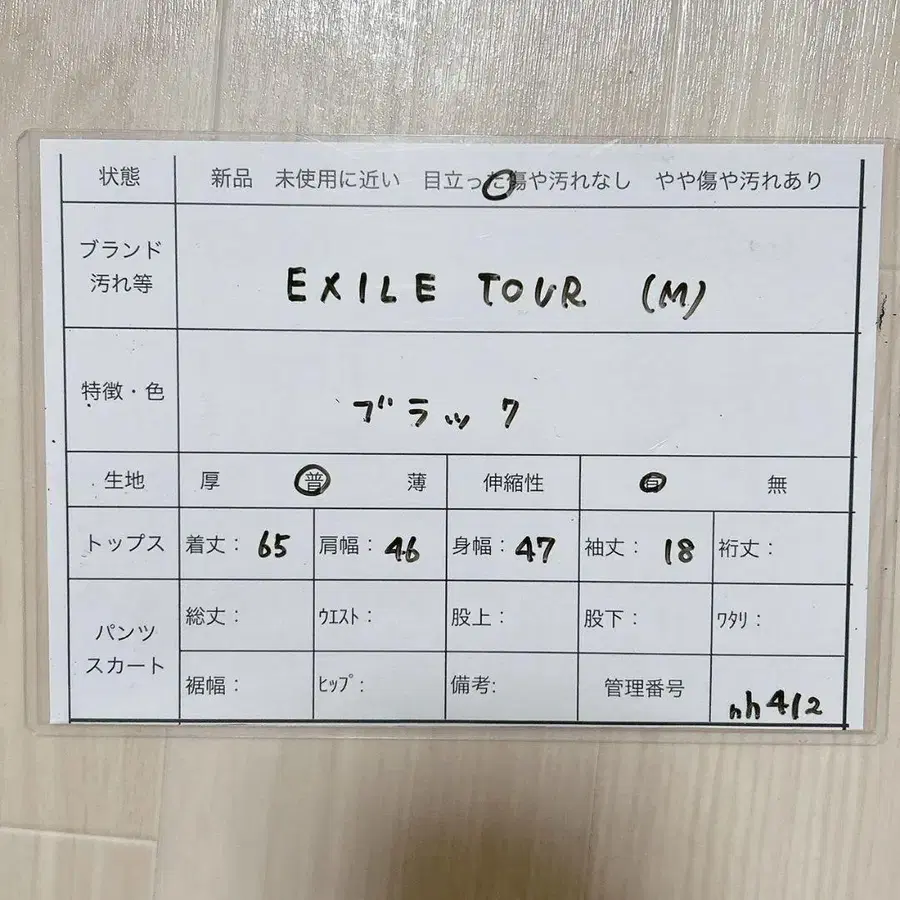 状態 新品 未使用に近い 目立った傷や汚れなし やや傷や汚れあり
ブランド
汚れ等
EXILE TOUR (M)
特徴・色
ブラック
生地 厚 普 薄 伸縮性 有 無
トップス 着丈: 65 肩幅: 46 身幅: 47 袖丈: 18 裄丈:
パンツ
スカート
総丈: ウエスト: 股上: 股下: ワタリ:
裾幅: ヒップ: 備考: 管理番号 hh412